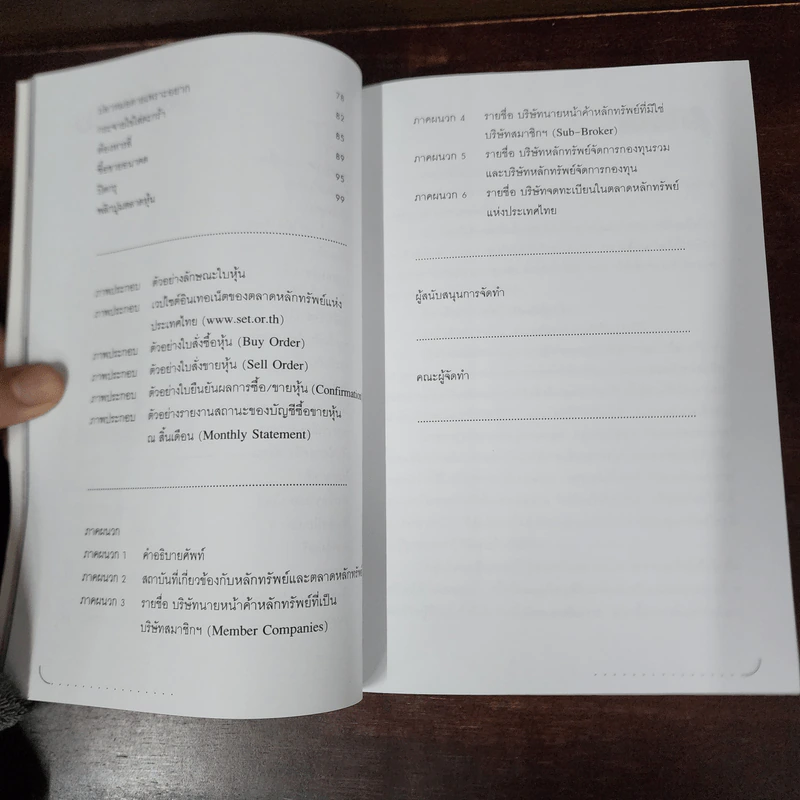 78
กระจายไข่ใส่ตะกร้า 82
ต้องการซื้อ 85
ซื้อขายอนาคต 89
ปีตะกู 95
พลิกปูมตลาดหุ้น 99
ภาพประกอบ ตัวอย่างลักษณะใบหุ้น
ภาพประกอบ เวปไซต์อินเทอเน็ตของตลาดหลักทรัพย์แห่ง
ประเทศไทย (www.set.or.th)
ภาพประกอบ ตัวอย่างใบสั่งซื้อหุ้น (Buy Order)
ภาพประกอบ ตัวอย่างใบสั่งขายหุ้น (Sell Order)
ภาพประกอบ ตัวอย่างใบยืนยันผลการซื้อ/ขายหุ้น (Confirmation
ภาพประกอบ ตัวอย่างรายงานสถานะของบัญชีซื้อขายหุ้น
ณ สิ้นเดือน (Monthly Statement)
ภาคผนวก
ภาคผนวก 1 คำอธิบายศัพท์
ภาคผนวก 2 สถาบันที่เกี่ยวข้องกับหลักทรัพย์และตลาดหลักทรัพ
ภาคผนวก 3 รายชื่อ บริษัทนายหน้าค้าหลักทรัพย์ที่เป็น
บริษัทสมาชิกฯ (Member Companies)
ภาคผนวก 4 รายชื่อ บริษัทนายหน้าค้าหลักทรัพย์ที่มิใช่
บริษัทสมาชิกฯ (Sub-Broker)
ภาคผนวก 5 รายชื่อ บริษัทหลักทรัพย์จัดการกองทุนรวม
และบริษัทหลักทรัพย์จัดการกองทุน
ภาคผนวก 6 รายชื่อ บริษัทจดทะเบียนในตลาดหลักทรัพย์
แห่งประเทศไทย
ผู้สนับสนุนการจัดทำ
คณะผู้จัดทำ